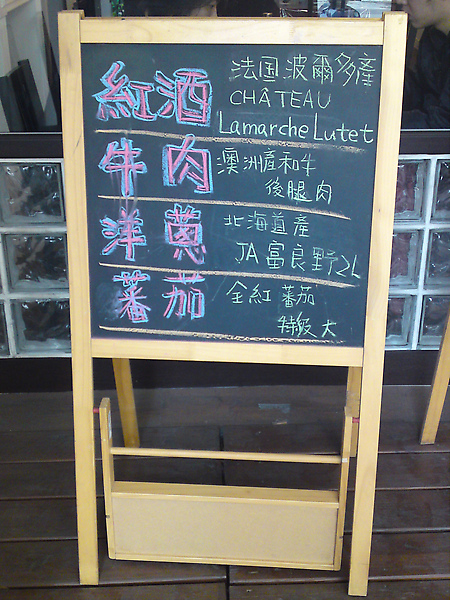 紅酒
法国波爾多產
CHÂTEAU
Lamarche Lutet
牛肉
澳洲產和牛
後腿肉
洋蔥
北海道產
JA富良野2L
蕃茄
全紅蕃茄
特級大